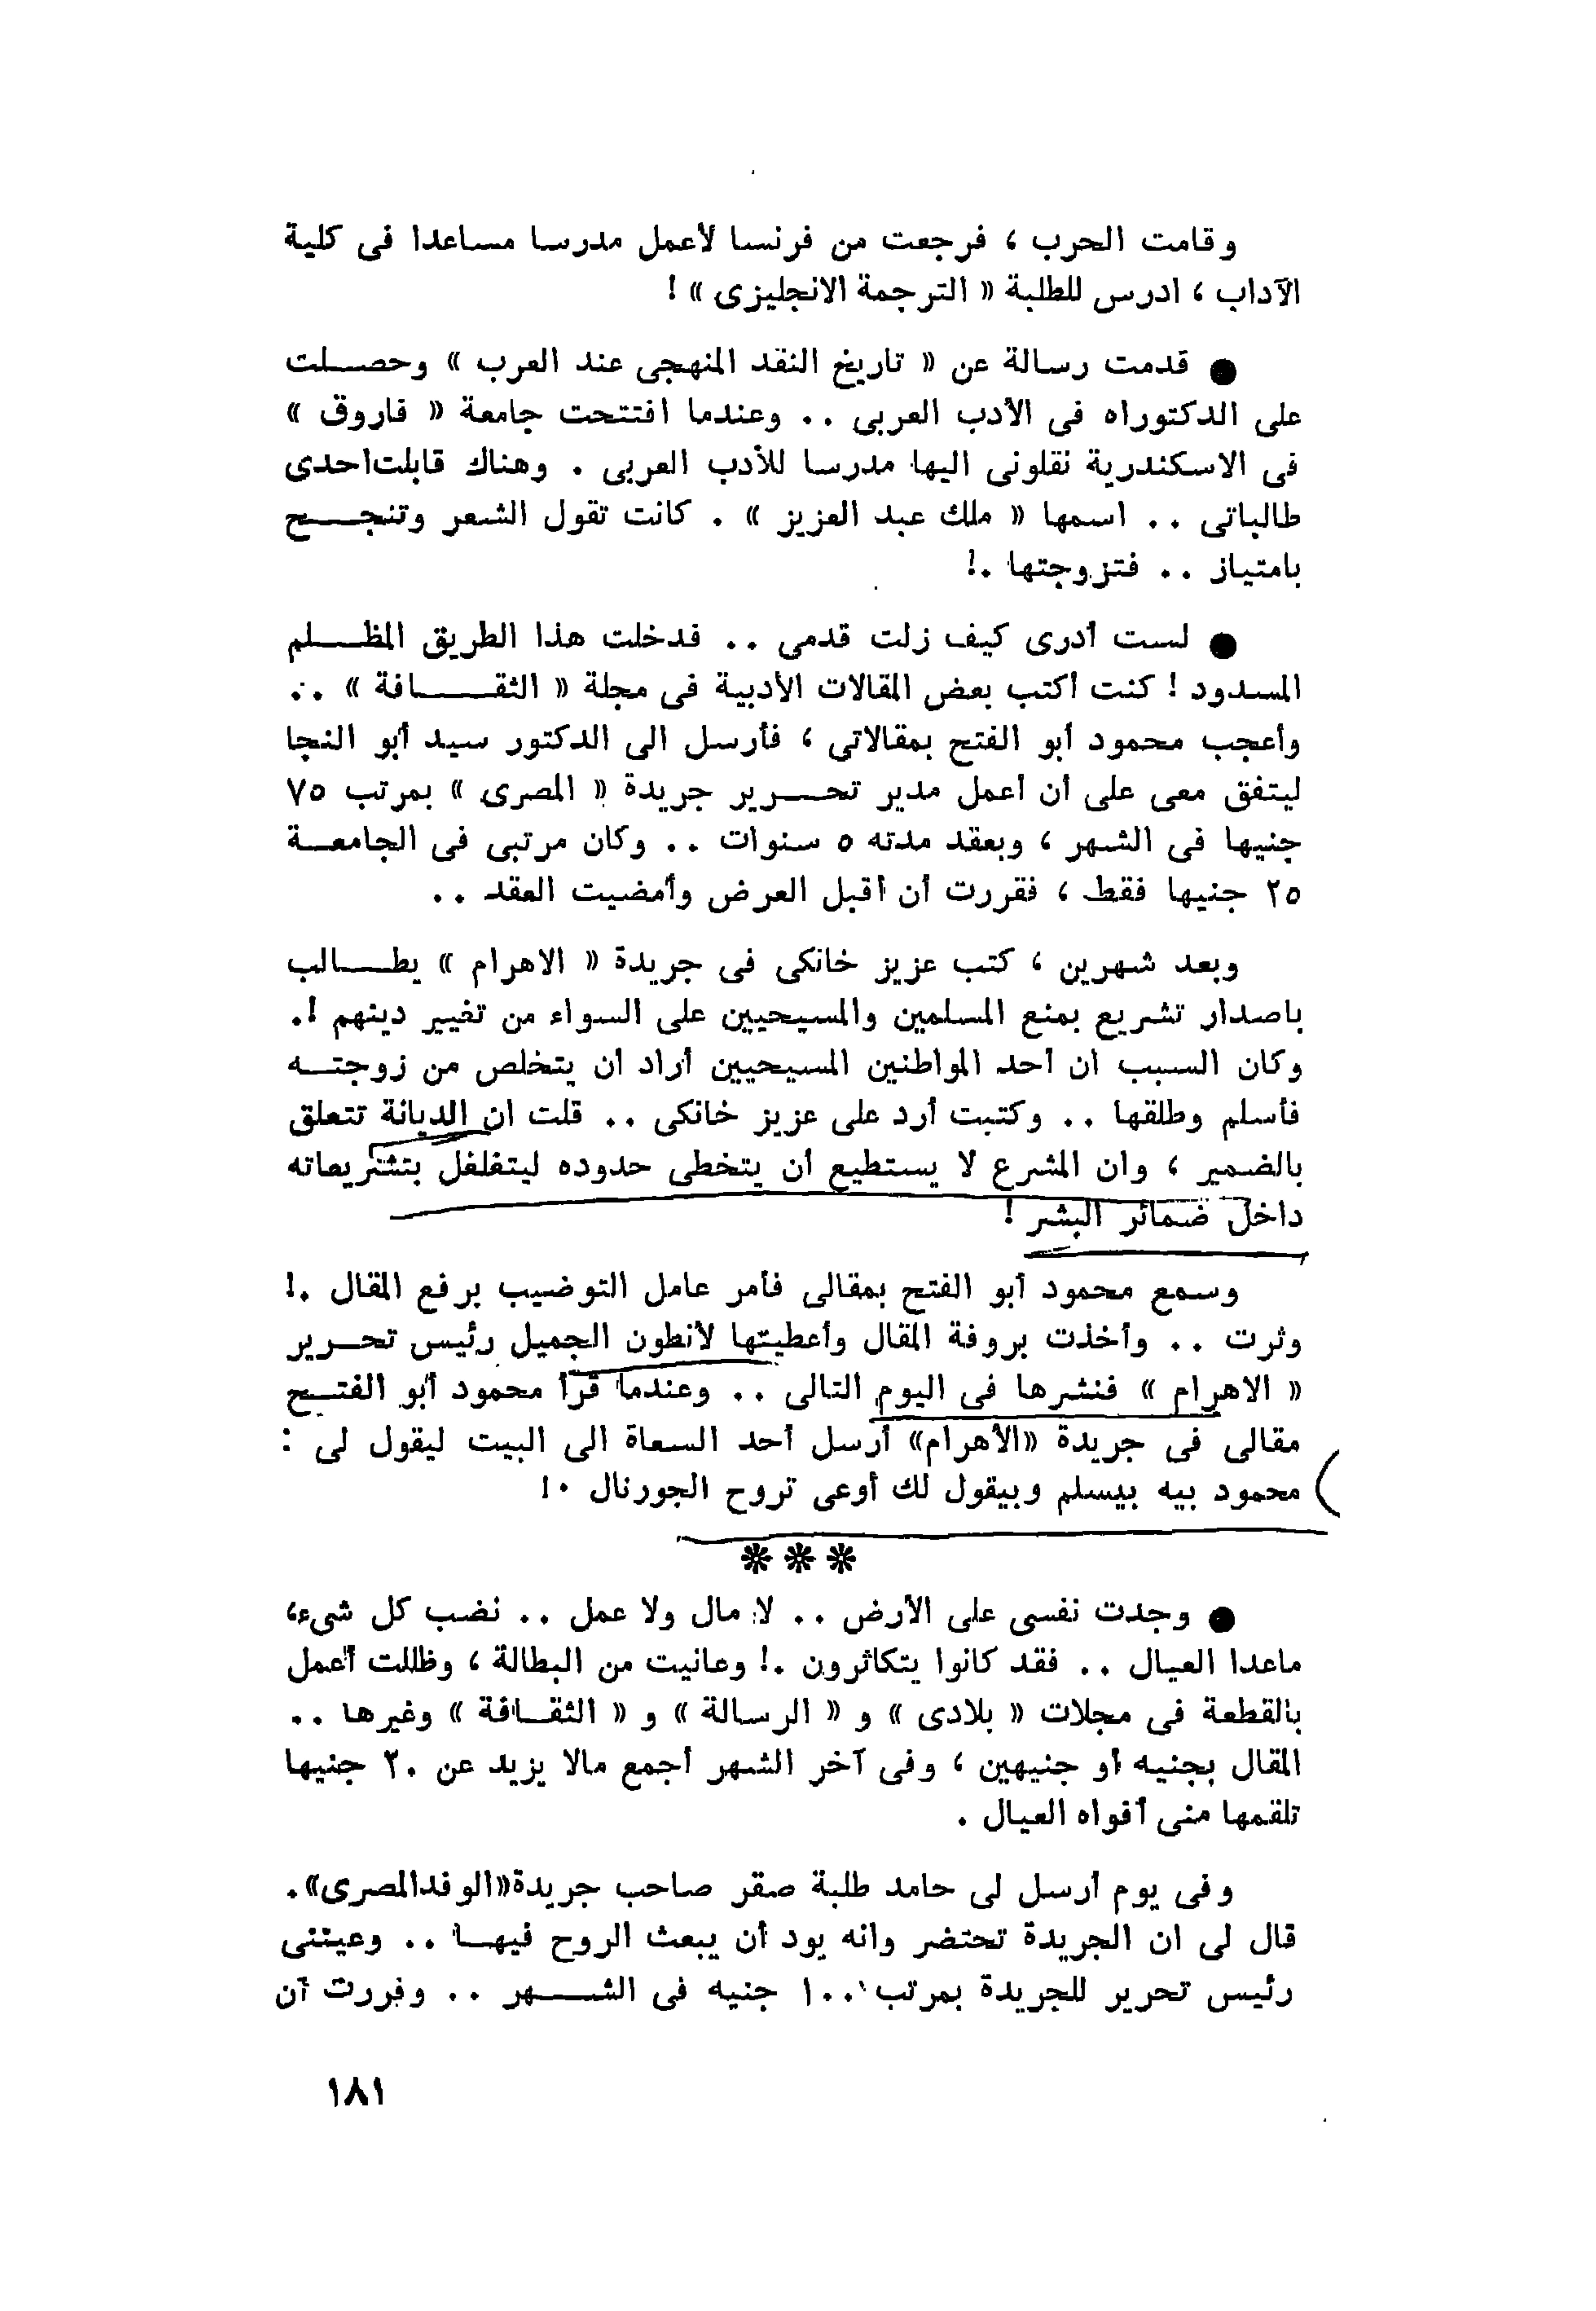 وقامت الحرب ، فرجعت من فرنسا لأعمل مدرسا مساعدا فى كلية
الآداب ، ادرس للطلبة « الترجمة الانجليزى » !
● قدمت رسالة عن « تاريخ النقد المنهجى عند العرب » وحصلت
على الدكتوراه فى الأدب العربى .. وعندما افتتحت جامعة « فاروق »
فى الاسكندرية نقلونى اليها مدرسا للأدب العربى . وهناك قابلت احدى
طالباتى .. اسمها « ملك عبد العزيز » . كانت تقول الشعر وتنجح
بامتياز .. فتزوجتها .!
● لست أدرى كيف زلت قدمى .. فدخلت هذا الطريق المظلم
المسدود ! كنت أكتب بعض المقالات الأدبية فى مجلة « الثقافة » ..
وأعجب محمود أبو الفتح بمقالاتى ، فأرسل الى الدكتور سيد أبو النجا
ليتفق معى على أن أعمل مدير تحرير جريدة « المصرى » بمرتب ٧٥
جنيها فى الشهر ، وبعقد مدته ٥ سنوات .. وكان مرتبى فى الجامعة
٢٥ جنيها فقط ، فقررت أن أقبل العرض وأمضيت العقد ..
وبعد شهرين ، كتب عزيز خانكى فى جريدة « الاهرام » يطالب
باصدار تشريع بمنع المسلمين والمسيحيين على السواء من تغيير دينهم !.
وكان السبب ان أحد المواطنين المسيحيين أراد أن يتخلص من زوجته
فأسلم وطلقها .. وكتبت أرد على عزيز خانكى .. قلت ان الديانة تتعلق
بالضمير ، وان المشرع لا يستطيع أن يتخطى حدوده ليتغلغل بتشريعاته
داخل ضمائر البشر !
وسمع محمود أبو الفتح بمقالى فأمر عامل التوضيب برفع المقال .!
وثرت .. وأخذت بروفة المقال وأعطيتها لأنطون الجميل رئيس تحرير
« الاهرام » فنشرها فى اليوم التالى .. وعندما قرأ محمود أبو الفتح
مقالى فى جريدة «الأهرام» أرسل أحد السعاة الى البيت ليقول لى :
محمود بيه بيسلم وبيقول لك أوعى تروح الجورنال .!
❋ ❋ ❋
● وجدت نفسى على الأرض .. لا مال ولا عمل .. نضب كل شىء،
ماعدا العيال .. فقد كانوا يتكاثرون .! وعانيت من البطالة ، وظللت أعمل
بالقطعة فى مجلات « بلادى » و « الرسالة » و « الثقافة » وغيرها ..
المقال بجنيه أو جنيهين ، وفى آخر الشهر أجمع مالا يزيد عن ٢٠ جنيها
تلقمها منى أفواه العيال .
وفى يوم أرسل لى حامد طلبة صقر صاحب جريدة«الوفد المصرى».
قال لى ان الجريدة تحتضر وانه يود أن يبعث الروح فيها .. وعيننى
رئيس تحرير للجريدة بمرتب ١٠٠ جنيه فى الشهر .. وقررت أن
١٨١